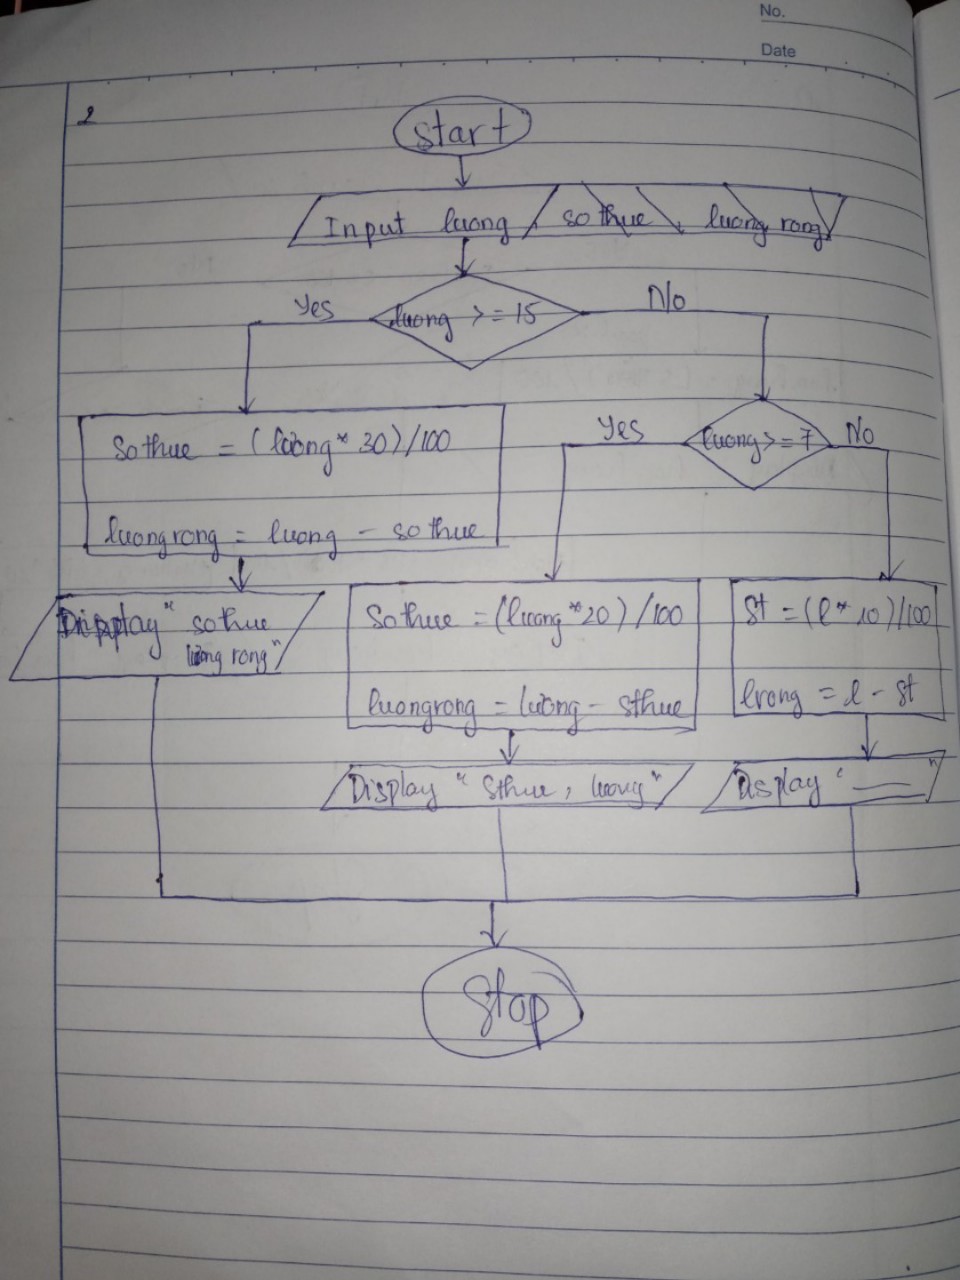 No.
Date
2
start
Input luong / so thue, luong rong
luong >= 15
Yes
No
luong >= 7
Yes
No
So thue = (lương * 30)/100
luongrong = luong - so thue
Display "sothue
lương rong"
Sothue = (luong * 20)/100
luongrong = lương - sthue
Display "Sthue, luong"
St = (l * 10)/100
lrong = l - St
Display "
"
Stop